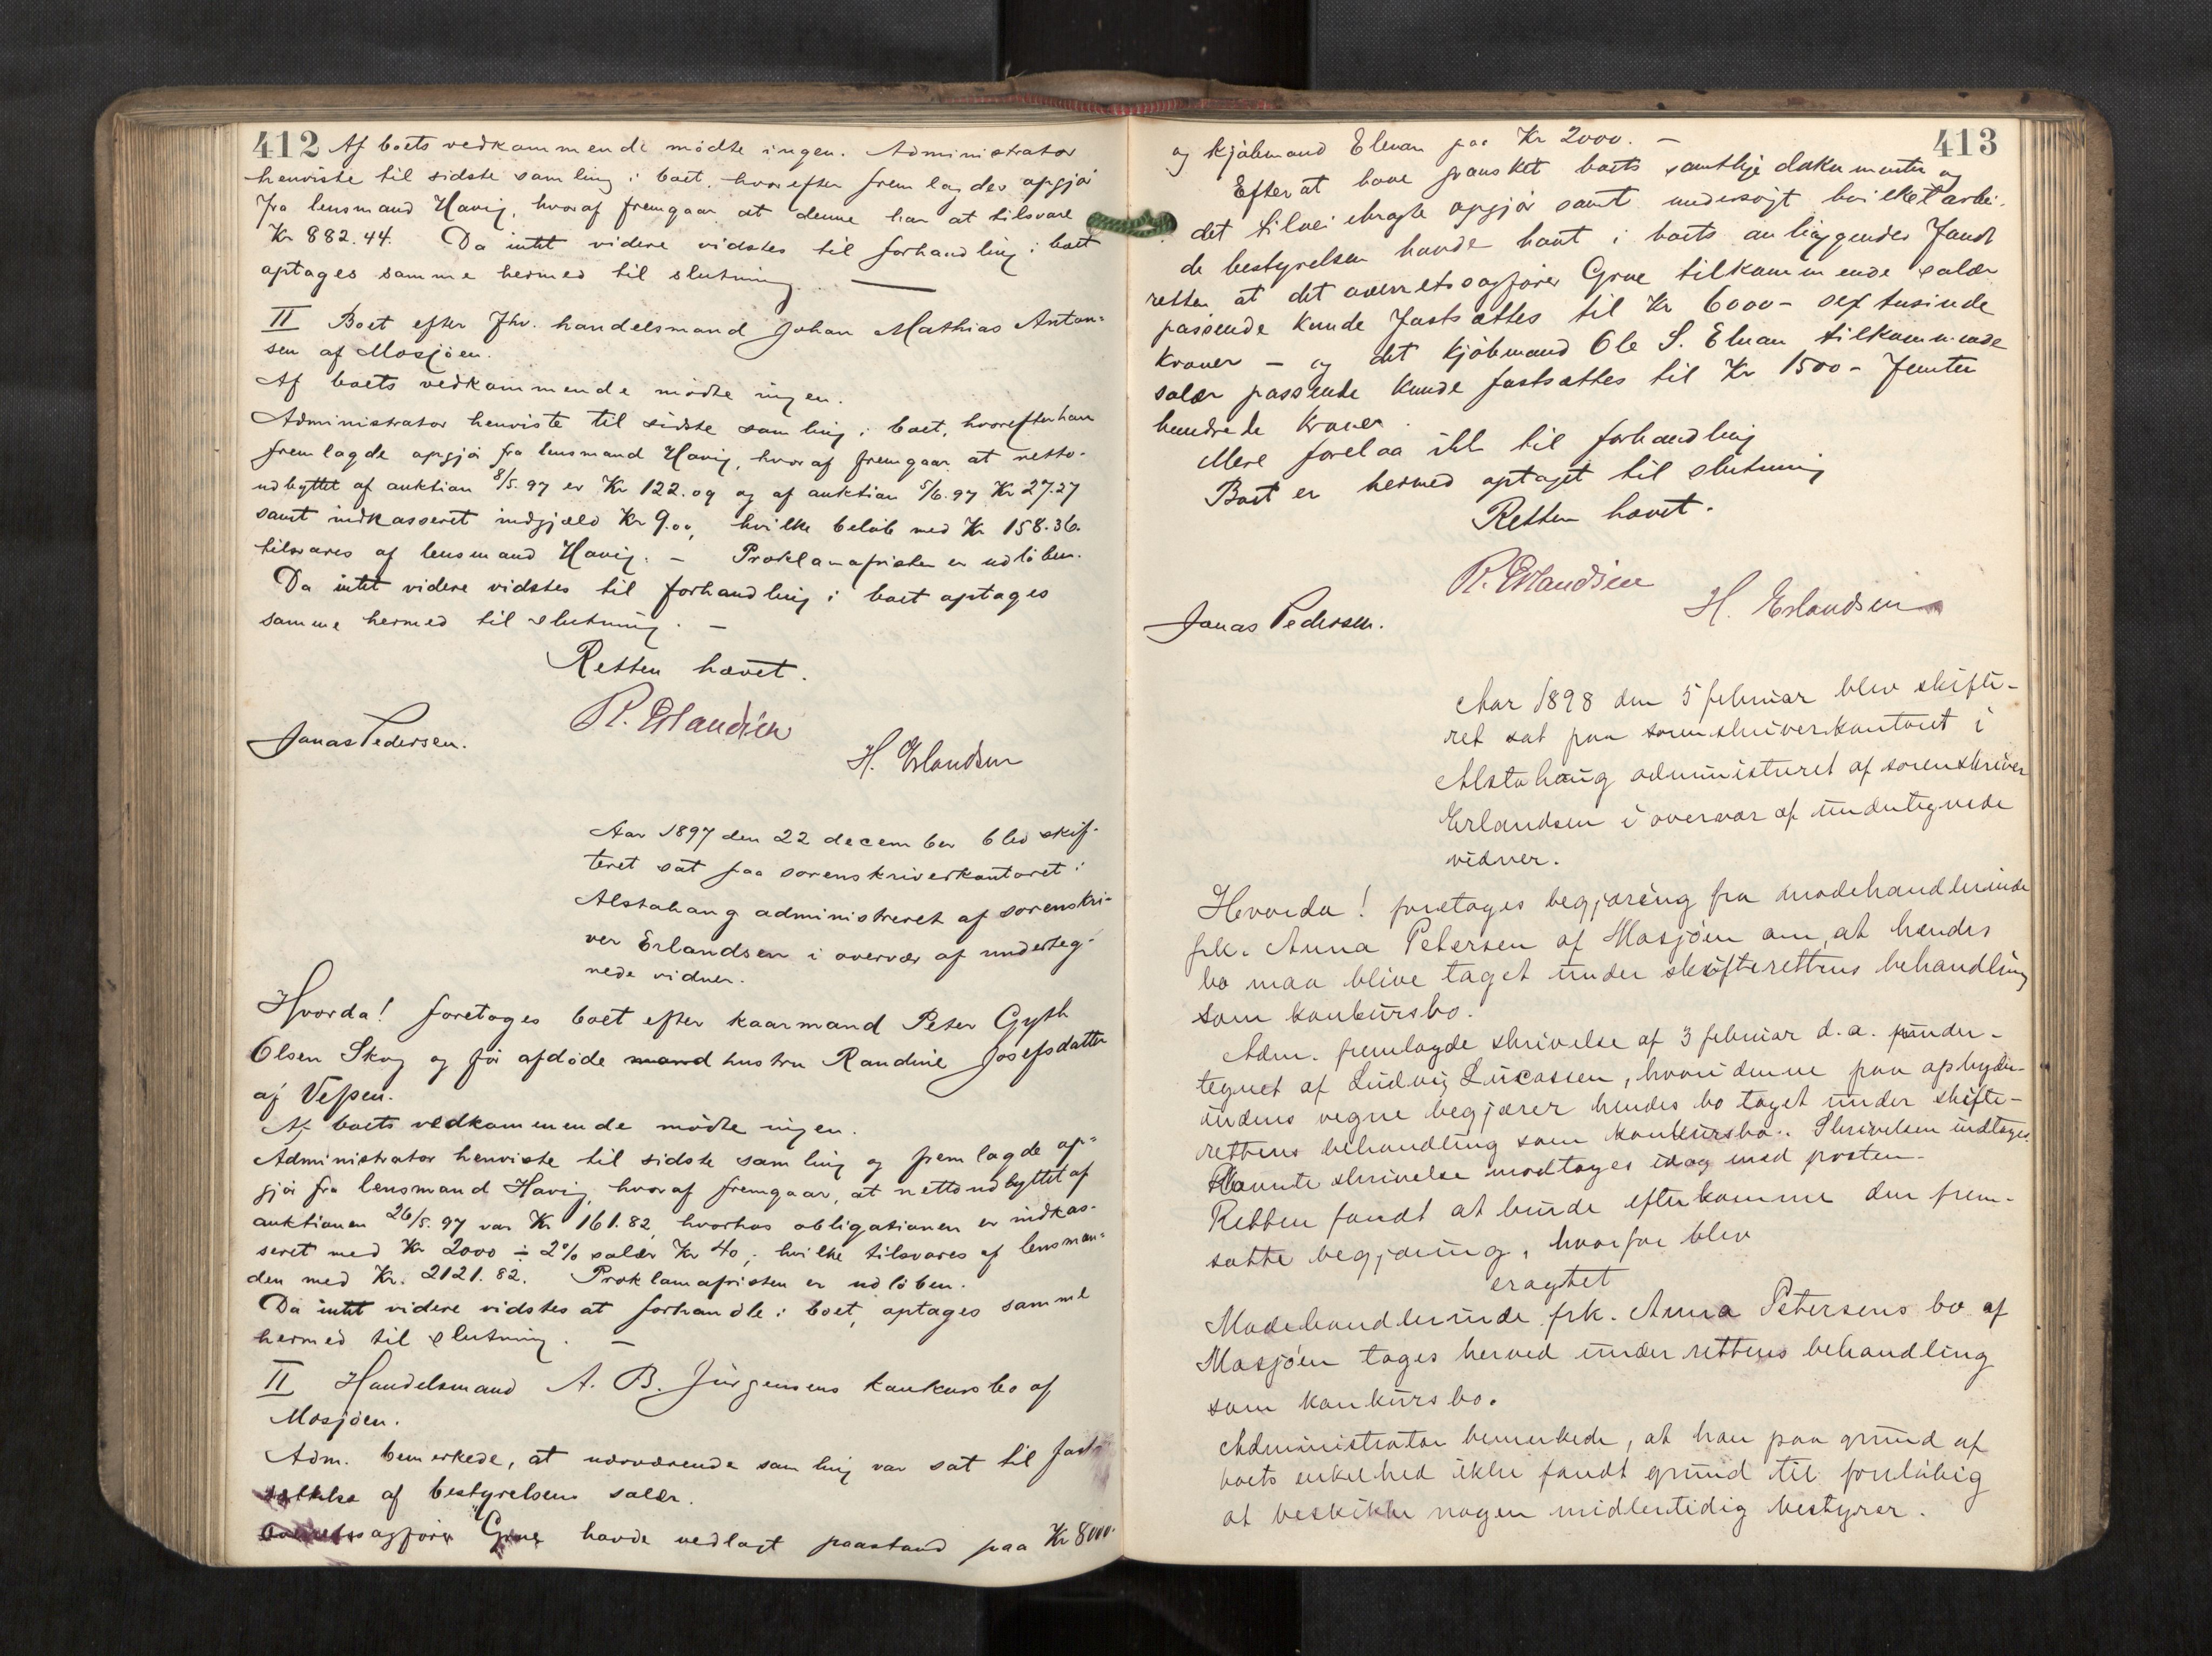 412 Af boets vedkommende mödte ingen. Administrator
henviste til sidste samling i boet, hvorefter fremlagdes opgjör
fra lensmand Havig, hvoraf fremgaar at denne har at tilsvare
Kr 882.44. Da intet videre vidstes til forhandling i boet
optages samme hermed til slutning. —
II Boet efter fhv. handelsmand Johan Mathias Anton=
sen af Mosjöen.
Af boets vedkommende mödte ingen.
Administrator henviste til sidste samling i boet, hvorefter han
fremlagde opgjör fra lensmand Havig, hvoraf fremgaar at netto-
udbyttet af auktion 8/5.97 er Kr 122.09 og af auktion 5/6.97 Kr 27.27
samt indkasseret indgjæld Kr 9.00, hvilke belöb med Kr 158.36.
tilsvares af lensmand Havig. — Proklamafristen er udlöben.
Da intet videre vidstes til forhandling i boet optages
samme hermed til slutning. —
Retten hævet.
R. Erlandsen
Jonas Pedersen.
H. Erlandsen
Aar 1897 den 22 december blev skif-
teret sat paa sorenskriverkontoret i
Alstahaug administreret af sorenskri-
ver Erlandsen i overvær af underteg-
nede vidner.
Hvorda! foretoges boet efter kaarmand Peter Gyth
Olsen Skog og för afdöde mand hustru Randine Josefsdatter
af Vefsen.
Af boets vedkommende mödte ingen.
Administrator henviste til sidste samling og fremlagde op=
gjör fra lensmand Havig, hvoraf fremgaar, at nettoudbyttet af
auktionen 26/5.97 var Kr 161.82, hvorhos obligationen er indkas-
seret med Kr 2000 ÷ 2% salær Kr 40, hvilke tilsvares af lensman=
den med Kr. 2121.82. Proklamafristen er udlöben.
Da intet videre vidstes at forhandle i boet, optages samme
hermed til slutning. —
II Handelsmand A. B. Jürgensens konkursbo af
Mosjöen.
Adm. bemerkede, at nærværende samling var sat til fast-
sættelse af bestyrelsens salær.
Overretssagförer Grue havde nedlagt paastand paa Kr 8000.
413
og kjöbmand Elnan paa Kr 2000. —
Efter at have gransket boets samtlige dokumenter og
det tilveiebragte opgjör samt undersögt hvilket arbei-
de bestyrelsen havde havt i boets anliggender fandt
retten at det overretssagförer Grue tilkommende salær
passende kunde fastsættes til Kr 6000 - sex tusinde
kroner — og det kjöbmand Ole S. Elnan tilkommende
salær passende kunde fastsættes til Kr 1500 - femten
hundrede kroner.
Mere forelaa ikke til forhandling
Boet er hermed optaget til slutning
Retten hævet.
R. Erlandsen
Jonas Pedersen.
H. Erlandsen
Aar 1898 den 5 februar blev skifte-
ret sat paa sorenskriverkontoret i
Alstahaug administreret af sorenskriver
Erlandsen i overvær af undertegnede
vidner.
Hvorda! foretoges begjæring fra modehandlerinde
frk. Anna Petersen af Mosjöen om, at hendes
bo maa blive taget under skifterettens behandling
som konkursbo.
Adm. fremlagde skrivelse af 3 februar d.a. under-
tegnet af Ludvig Lucassen, hvori denne paa opbyder-
indens vegne begjærer hendes bo taget under skifte-
rettens behandling som konkursbo. Skrivelsen indtages
Nævnte skrivelse modtoges idag med posten.
Retten fandt at burde efterkomme den frem-
satte begjæring, hvorfor blev
eragtet
Modehandlerinde frk. Anna Petersens bo af
Mosjöen tages herved under rettens behandling
som konkursbo.
Administrator bemerkede, at han paa grund af
boets enkelhed ikke fandt grund til forelöbig
at beskikke nogen midlertidig bestyrer.